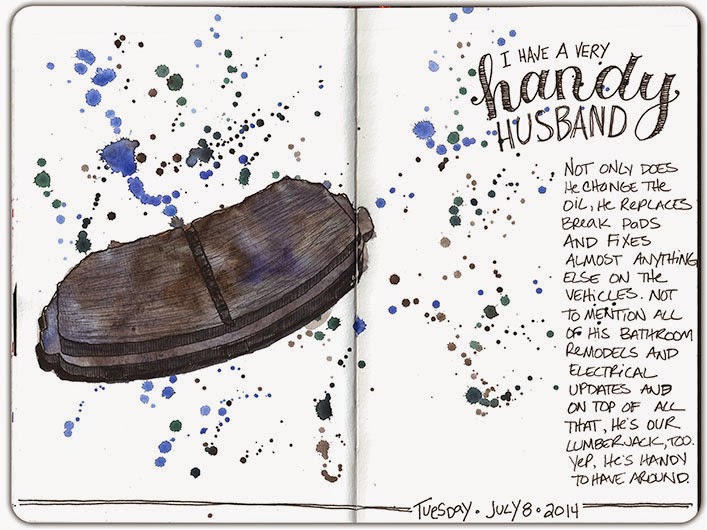 I HAVE A VERY
handy
HUSBAND
NOT ONLY DOES
HE CHANGE THE
OIL, HE REPLACES
BREAK PADS
AND FIXES
ALMOST ANYTHING
ELSE ON THE
VEHICLES. NOT
TO MENTION ALL
OF HIS BATHROOM
REMODELS AND
ELECTRICAL
UPDATES AND
ON TOP OF ALL
THAT, HE'S OUR
LUMBERJACK, TOO.
YEP, HE'S HANDY
TO HAVE AROUND.
TUESDAY. JULY 8. 2014